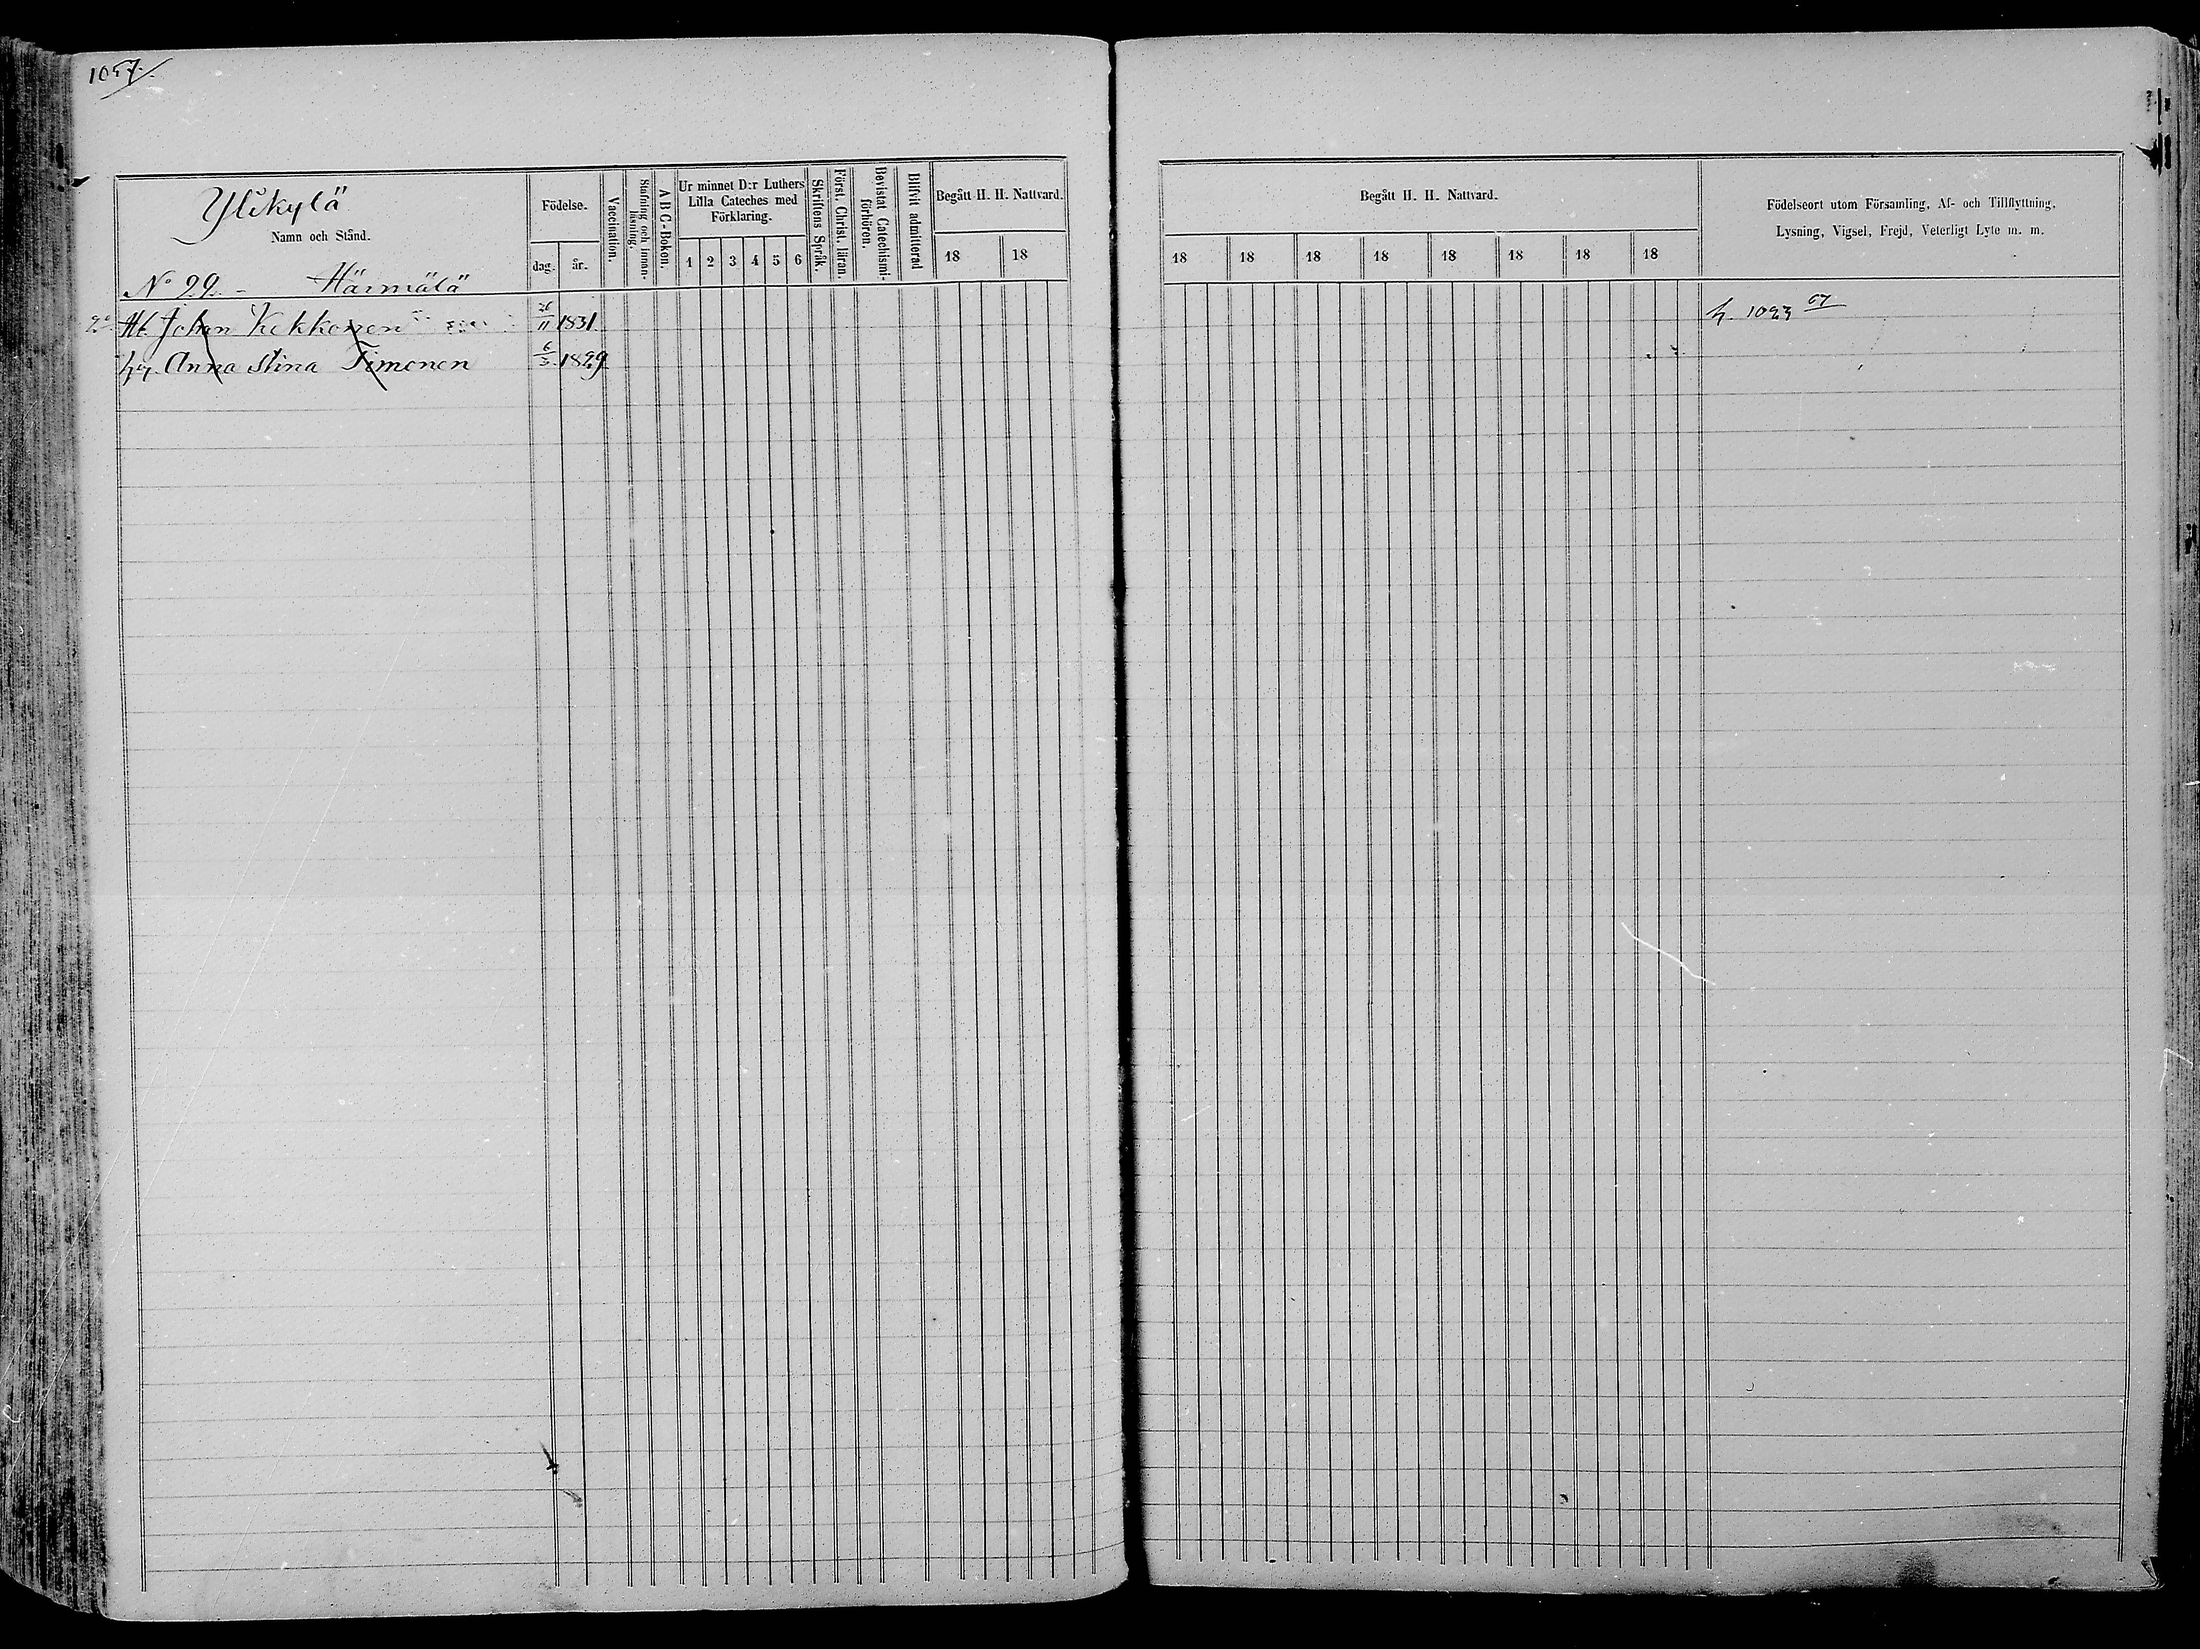 1057
Ylikylä
Namn och Stånd.
Födelse.
dag. år.
Vaccination.
Stafning och Innanläsning.
A B C-Boken.
Ur minnet D:r Luthers
Lilla Cateches med
Förklaring.
1 2 3 4 5 6
Skriftens Språk.
Först. Christ. läran.
Bevistat Catechismiförhören.
Blifvit admitterad
Begått H. H. Nattvard.
18 18
Begått H. H. Nattvard.
18 18 18 18 18 18 18 18
Födelseort utom Församling, Af- och Tillflyttning,
Lysning, Vigsel, Frejd, Veterligt Lyte m. m.
No 29 - Härmälä
Johan Kekkonen 26/11 1831 1023 67
Anna Stina Timonen 6/3 1829